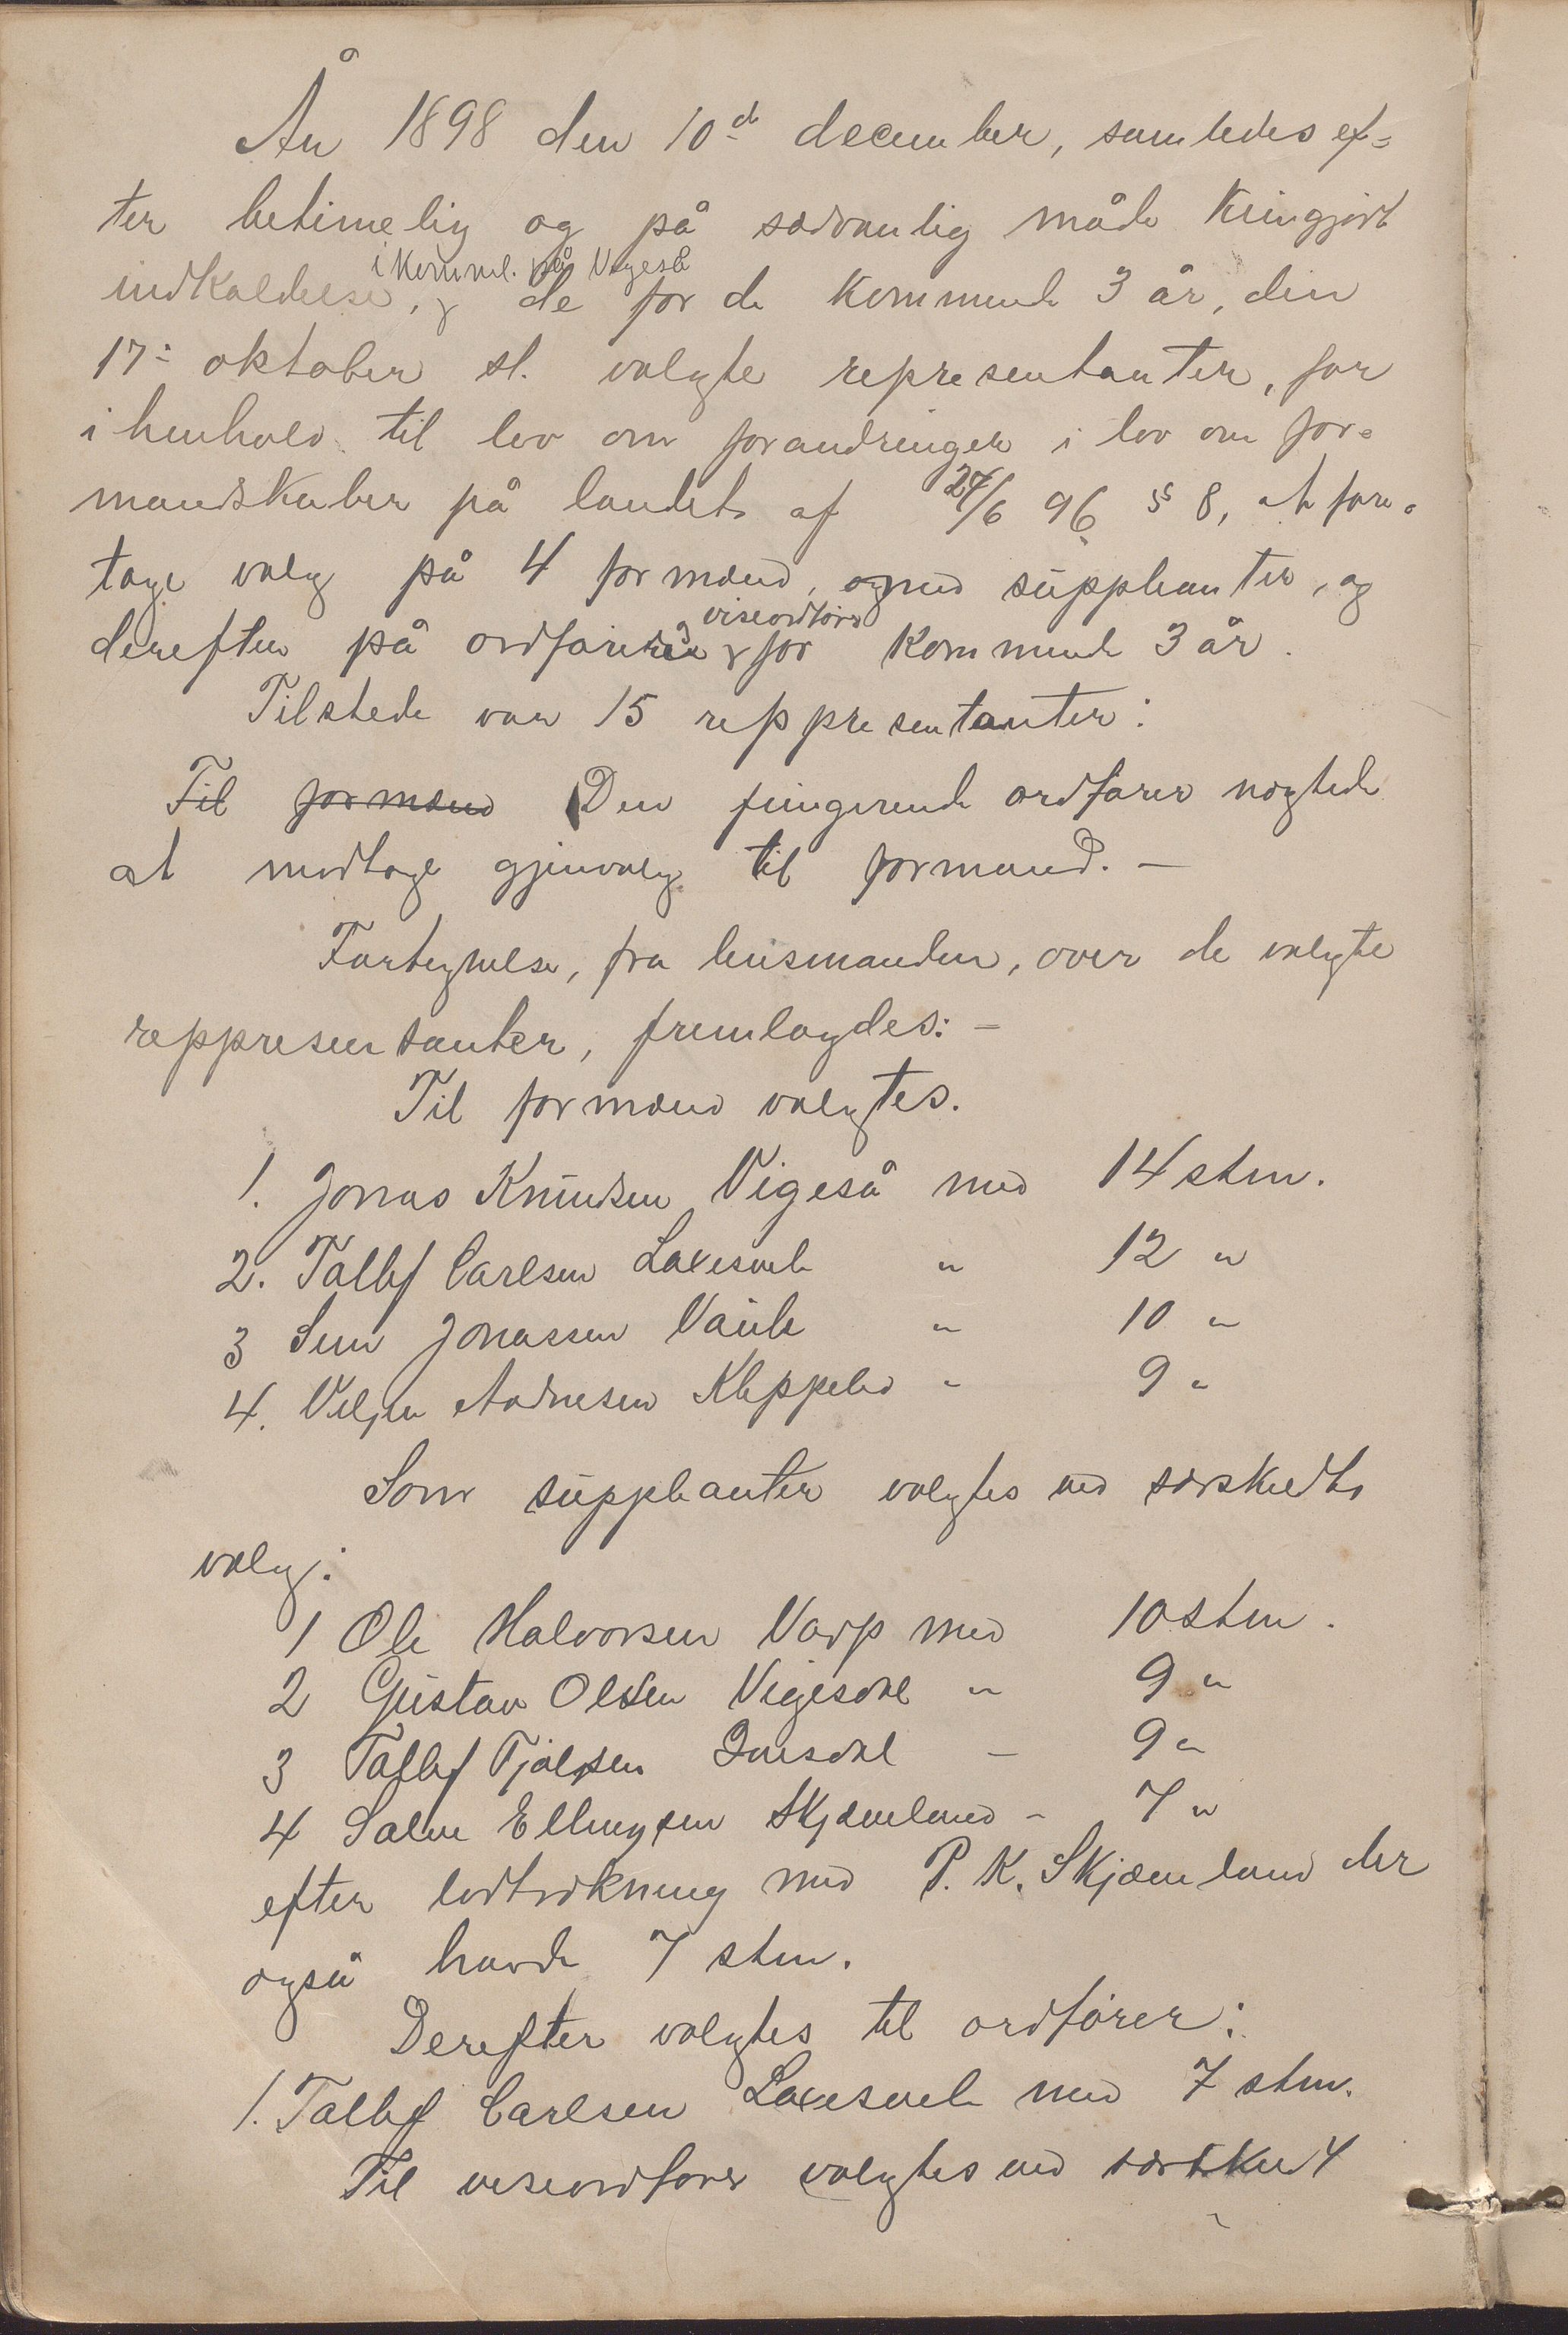 År 1898 den 10de december, samledes ef-
ter betimelig og på sædvanlig måde kungjort
i Komml. på Vigeså
indkaldelse, de for de kommende 3 år, den
17: oktober sl. valgte representanter, for
i henhold til lov om forandringer i lov om for-
mandskaber på landet af 27/6 96 § 8, at fore-
tage valg på 4 formænd, og med suppleanter, og
viseordfører
derefter på ordfører og for kommende 3 år.
Tilstede var 15 reppresentanter:
Til formænd Den fungerende ordfører nægtede
at modtage gjenvalg til formand. —
Fortegnelse, fra lensmanden, over de valgte
reppresentanter, fremlagdes: —
Til formænd valgtes.
1. Jonas Knudsen Vigeså med 14 stm.
2. Tallef Carlsen Laxesvele " 12 "
3 Sven Jonassen Vaule " 10 "
4. Veljer Andnesen Kleppelid " 9 "
Som suppleanter valgtes ved særskedt
valg:
1 Ole Halvorsen Varp med 10 stm.
2 Gustav Olsen Vigesdal " 9 "
3 Tallef Tjølsen Ivesdal — 9 "
4 Salve Ellingsen Skjæveland - 7 "
efter lodtrækning med P. K. Skjæveland der
også havde 7 stm.
Derefter valgtes til ordfører:
1. Tallef Carlsen Laxesvele med 7 stm.
Til viseordfører valgtes ved særskedt